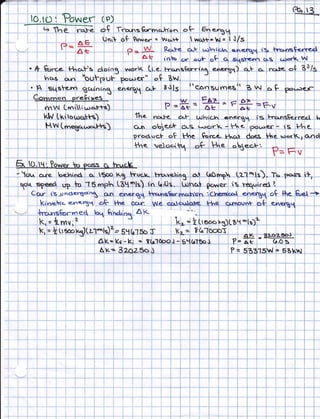 Pg.13
10.10: Power (P)
↳ The rate of Transformation of Energy
P = ΔE/Δt Unit of Power = Watt 1 Watt = W = 1 J/s
P = W/Δt Rate at which energy is transferred into or out of a system as work W
• A force that's doing work (i.e. transferring energy) at a rate of 3 J/s has an "output power" of 3W.
• A system gaining energy at 3 J/s "consumes" 3 W of power
Common prefixes
mW (milliwatts)
kW (kilowatts)
MW (megawatts)
P = W/Δt = FΔx/Δt = F Δx/Δt = Fv
The rate at which energy is transferred to an object as work - the power - is the product of the force that does the work, and the velocity of the object:
P = Fv
Ex 10.14: Power to pass a truck
- You are behind a 1500 kg truck traveling at 60mph (27 m/s). To pass it, you speed up to 75 mph (34 m/s) in 6.0s. What power is required?
Car is undergoing an energy transformation (Chemical energy of the fuel → kinetic energy of the car. We calculate the amount of energy transformed by finding ΔK
K₁ = ½mv₁²
K₁ = ½(1500kg)(27 m/s)² = 546750 J
K₂ = ½(1500kg)(34 m/s)²
K₂ = 867000J
ΔK = K₂ - K₁ = 867000J - 546750J
ΔK = 320250J
P = ΔK/Δt = 320250J/6.0s
P = 53375W = 53kW